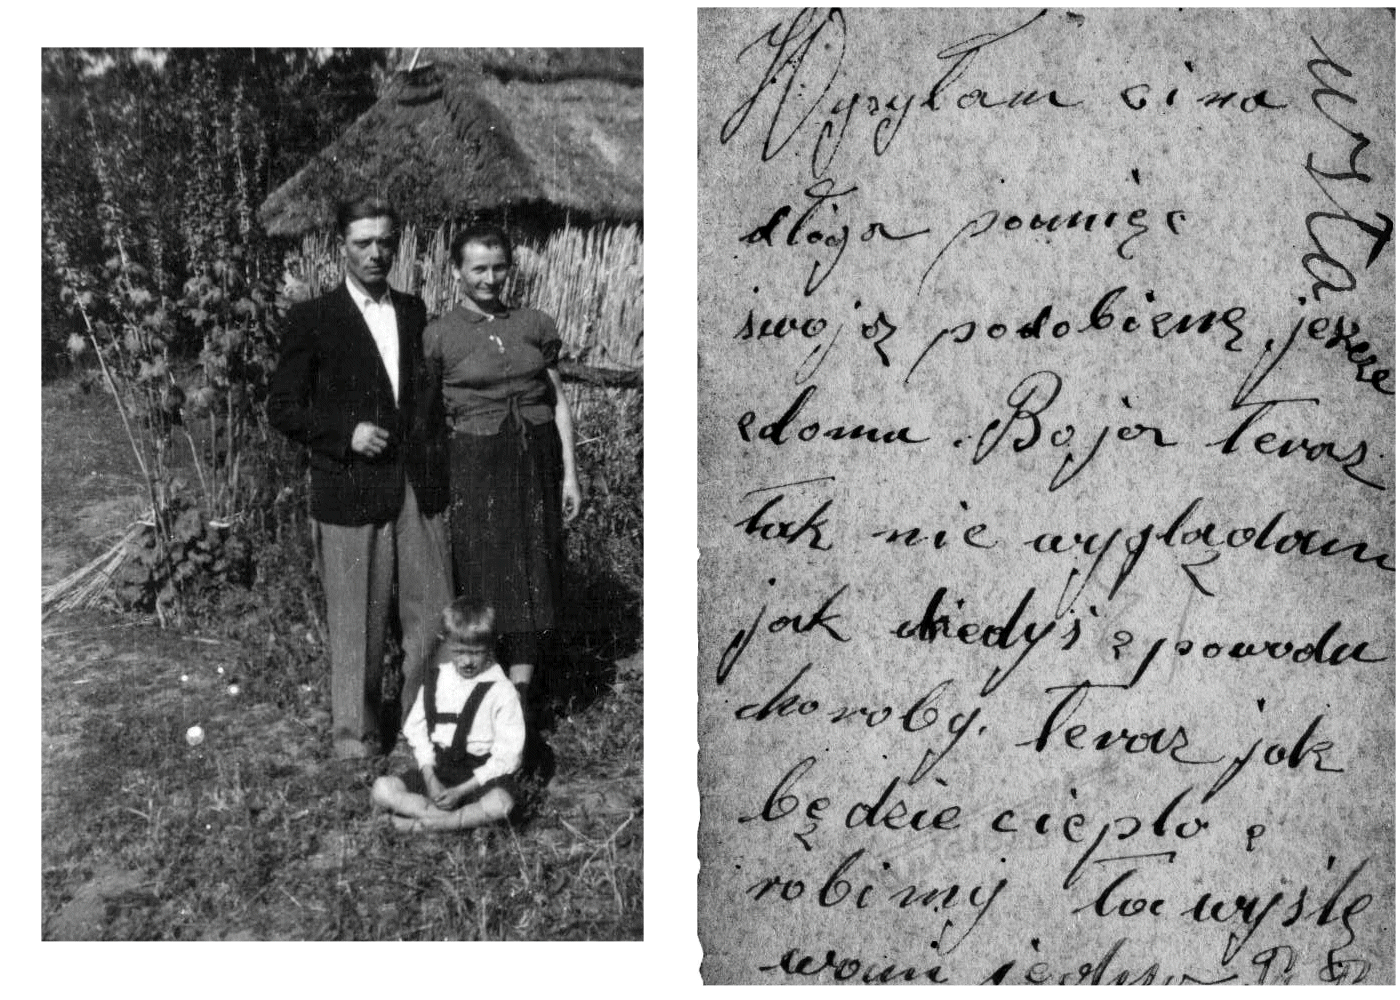 Wysyłam ci na
długa pamięć
swoją podobiznę jeszcze
zdoma. Bo ja teraz
tak nie wyglądam
jak kiedyś z powodu
horoby. teraz jak
będzie ciepło z
robimy to wyśle
wam